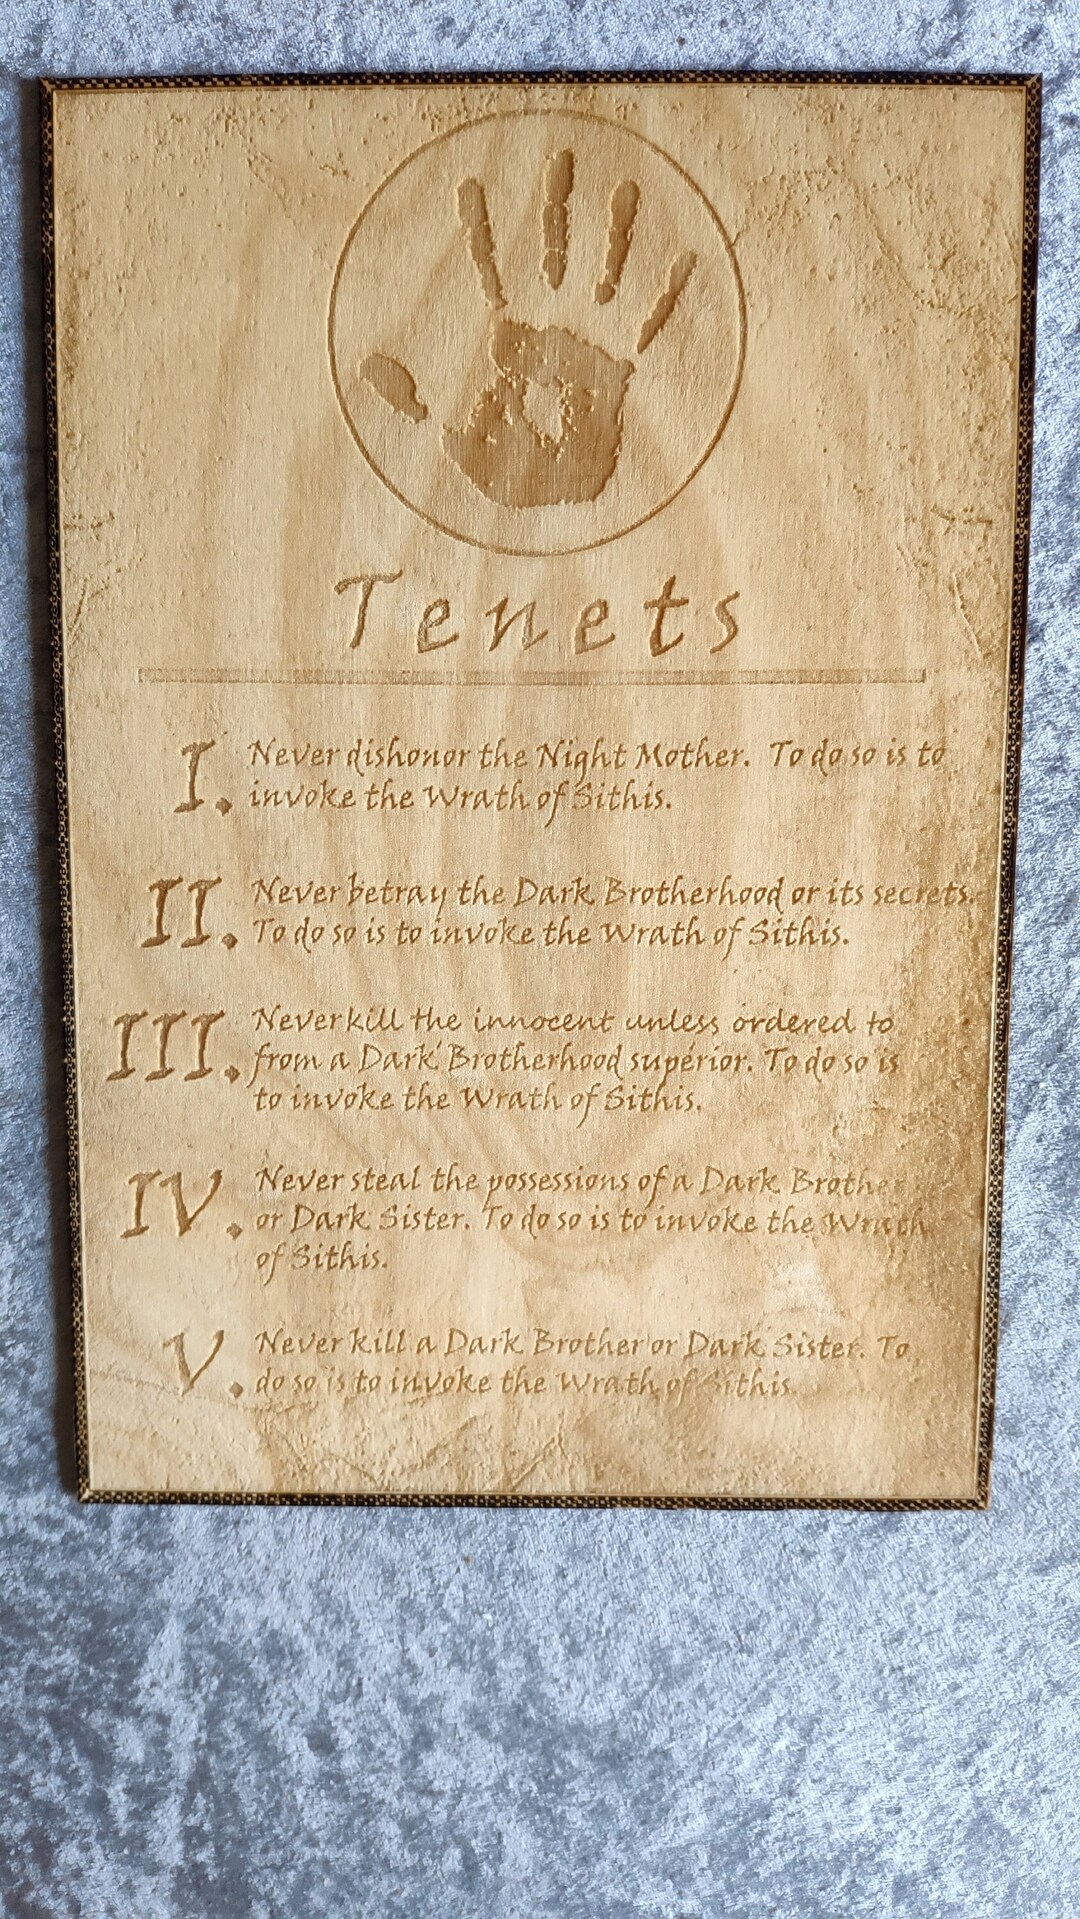 Tenets
I. Never dishonor the Night Mother. To do so is to
invoke the Wrath of Sithis.
II. Never betray the Dark Brotherhood or its secrets.
To do so is to invoke the Wrath of Sithis.
III. Never kill the innocent unless ordered to
from a Dark Brotherhood superior. To do so is
to invoke the Wrath of Sithis.
IV. Never steal the possessions of a Dark Brother
or Dark Sister. To do so is to invoke the Wrath
of Sithis.
V. Never kill a Dark Brother or Dark Sister. To
do so is to invoke the Wrath of Sithis.